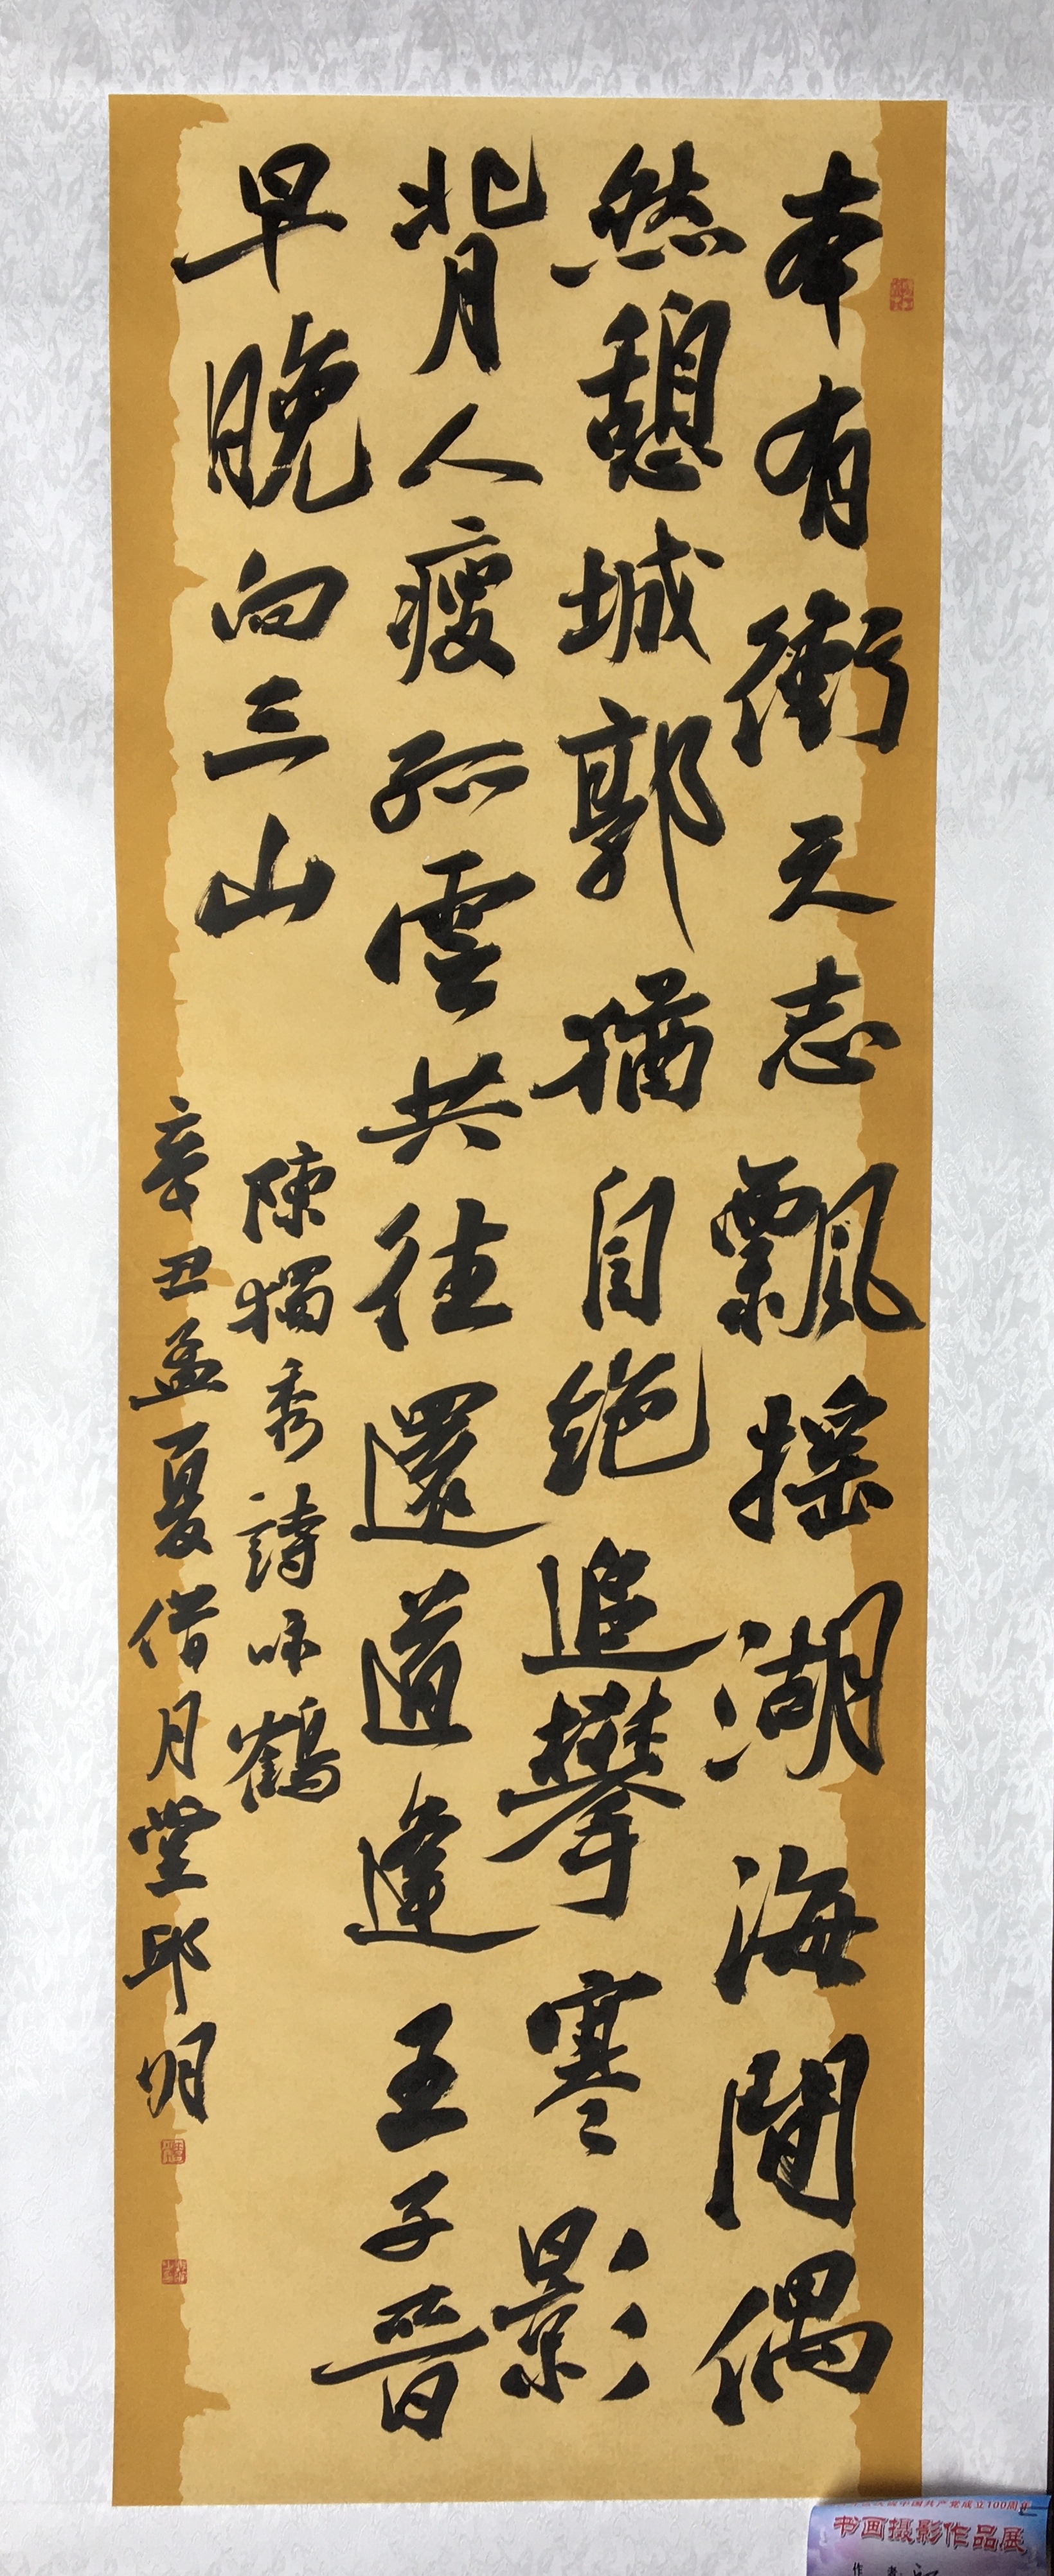 本有衝天志飄摇湖海間偶
然憩城郭猶自絕追攀寒影
背人瘦孤雲共往還道逢王子晉
早晚向三山
陳獨秀詩咏鶴
辛丑孟夏借月堂邱明
中国共产党成立100周年
书画摄影作品展
作 者: